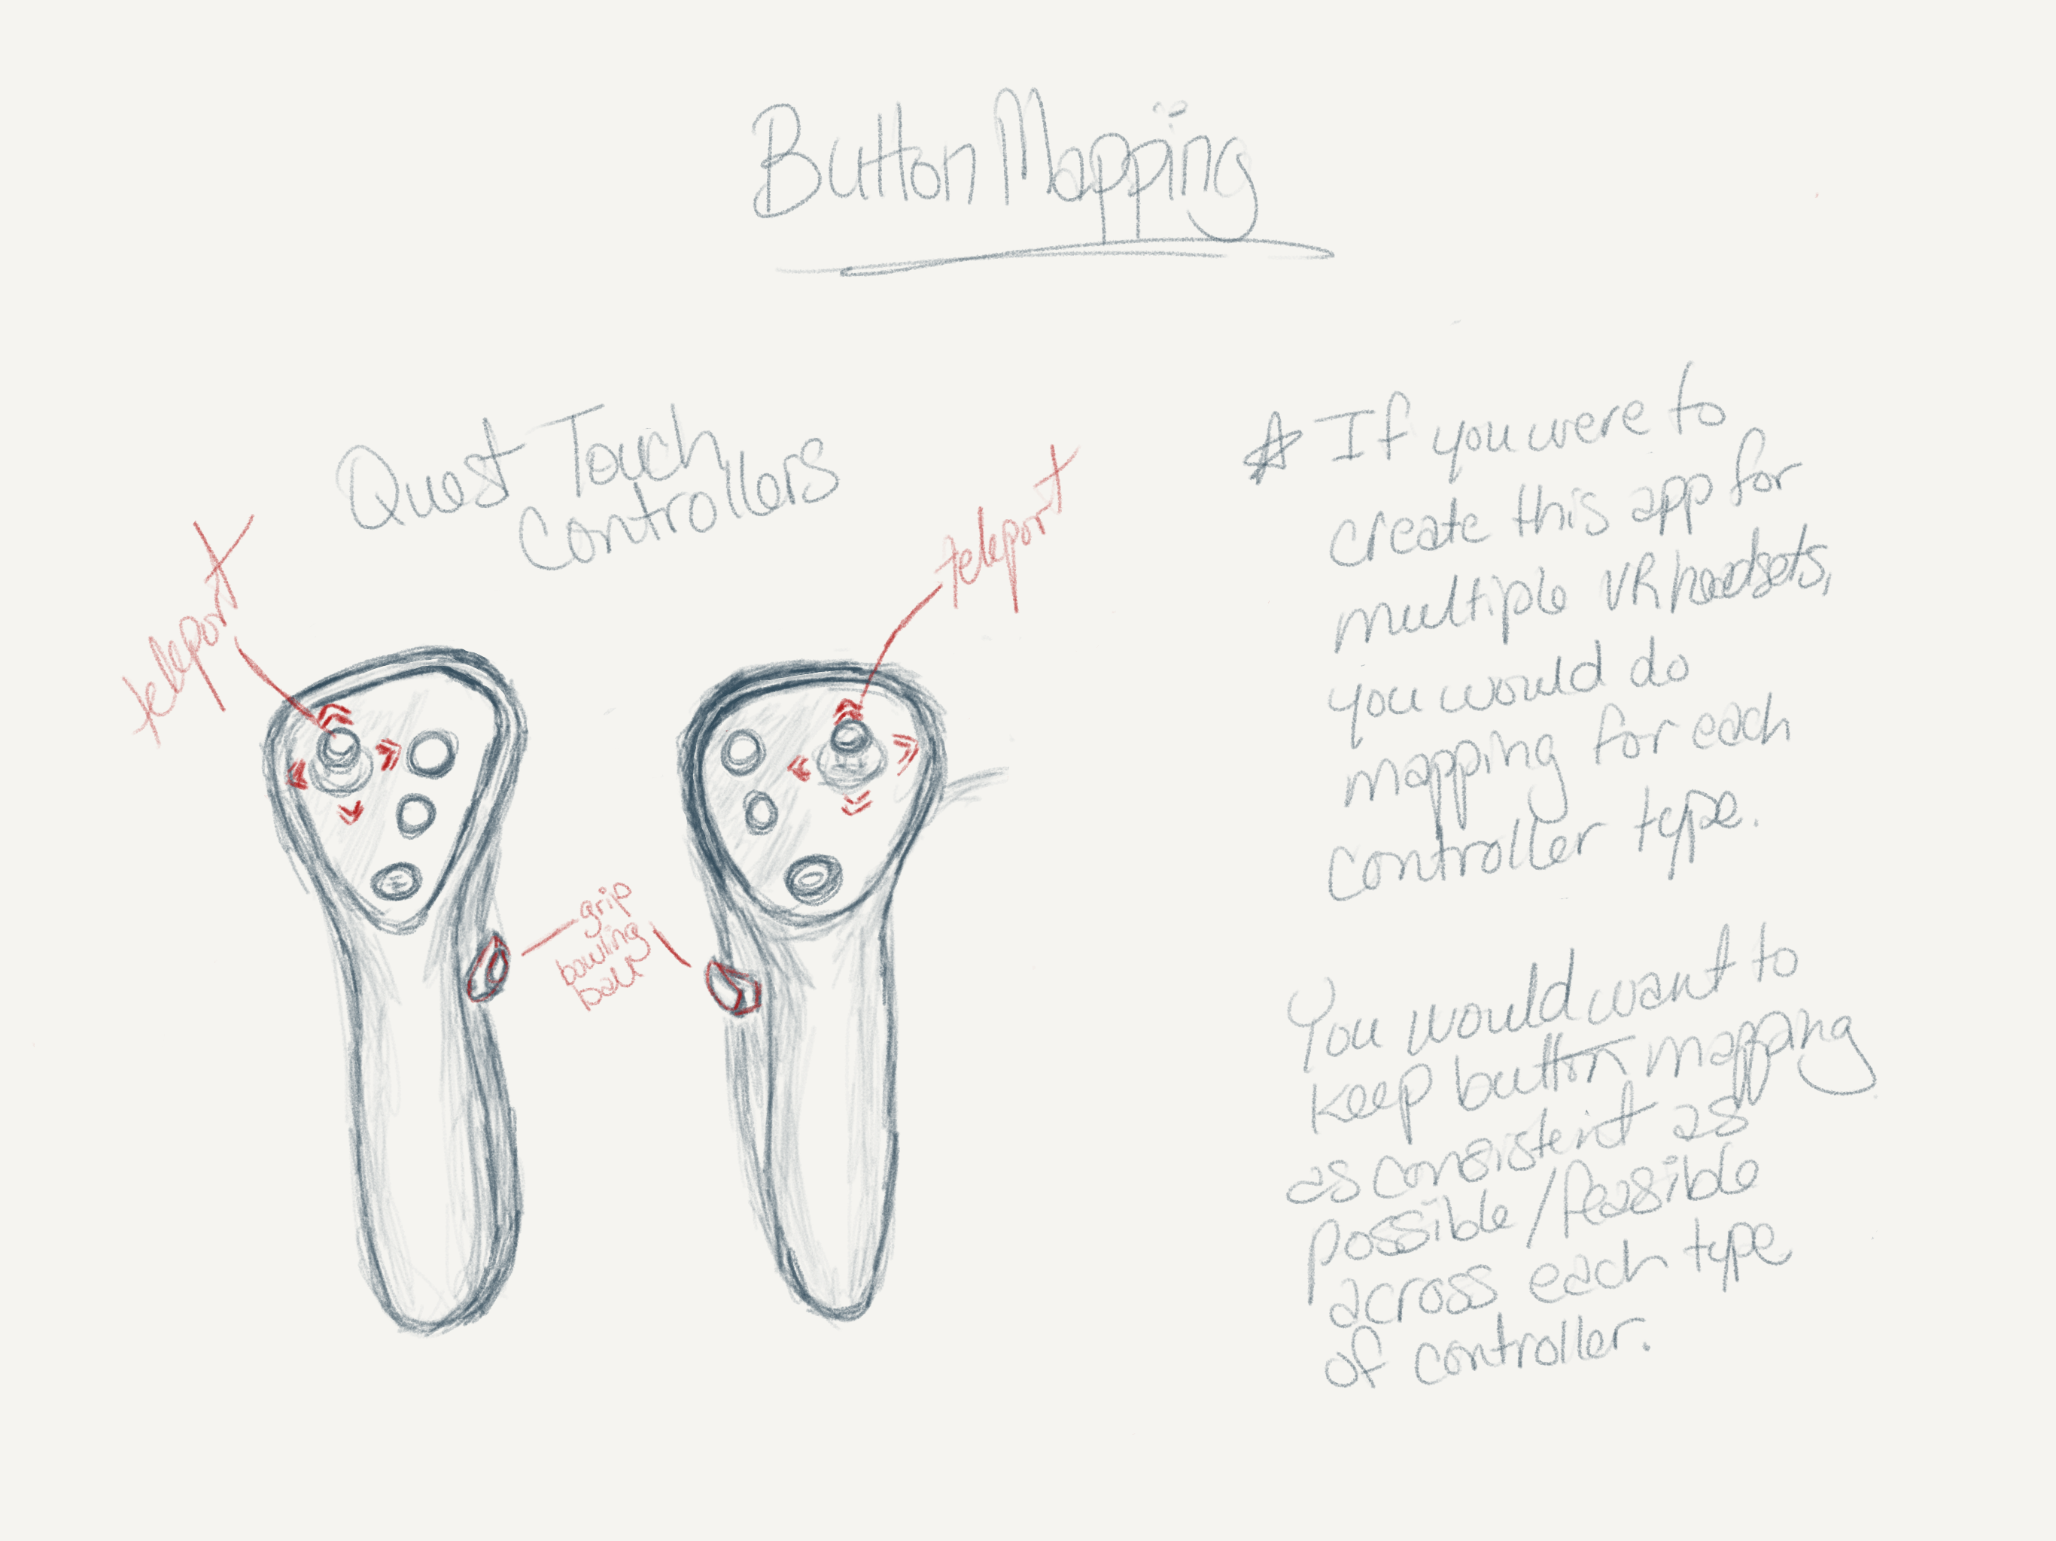 Button Mapping
Quest Touch
Controllers
teleport
teleport
grip
bowling
ball
* If you were to
create this app for
multiple VR headsets,
you would do
mapping for each
controller type.
You would want to
keep button mapping
as consistent as
possible/feasible
across each type
of controller.